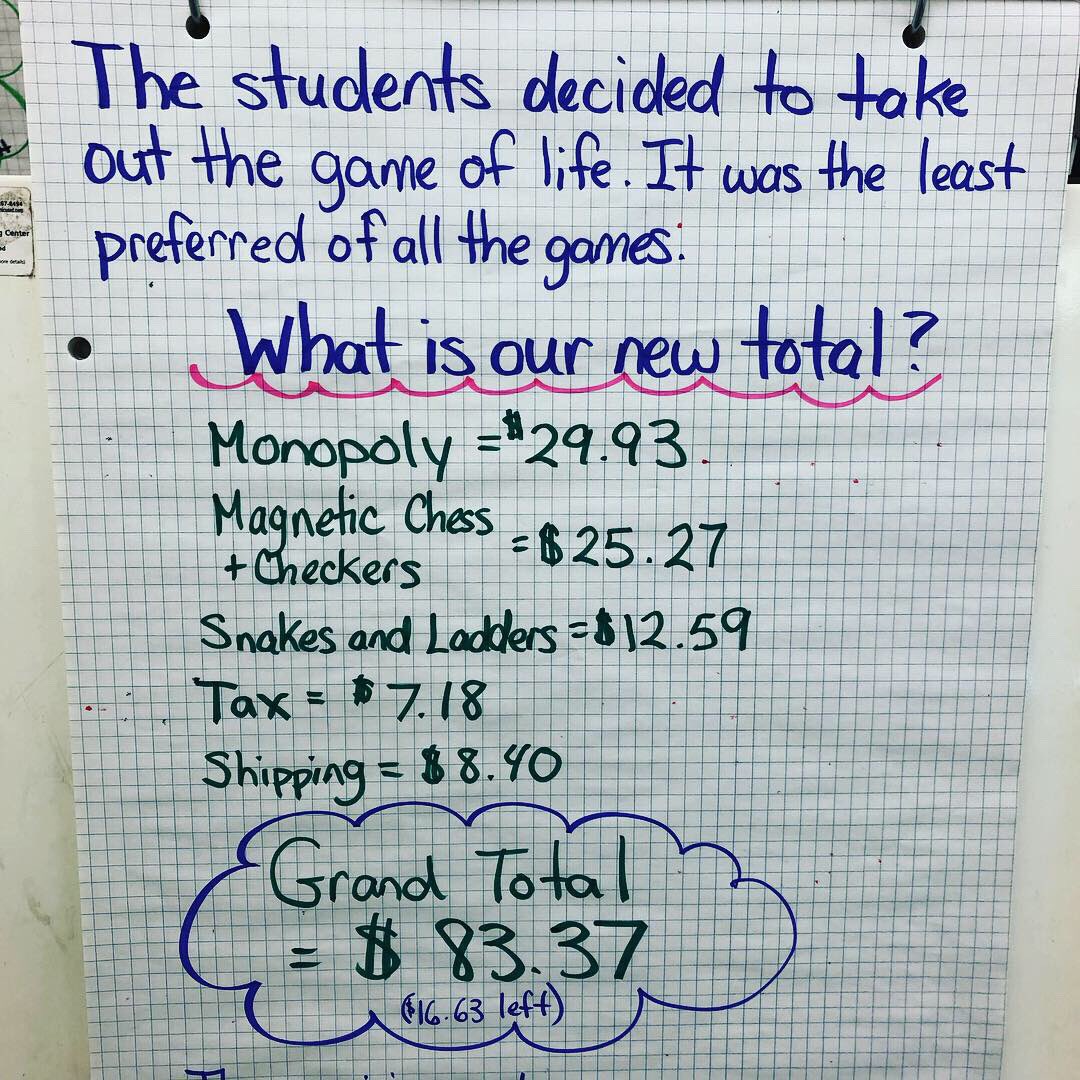 The students decided to take
out the game of life. It was the least
preferred of all the games.
What is our new total?
Monopoly = $29.93
Magnetic Chess
+ Checkers = $25.27
Snakes and Ladders = $12.59
Tax = $7.18
Shipping = $8.40
Grand Total
= $83.37
($16.63 left)
67-8494
g Center